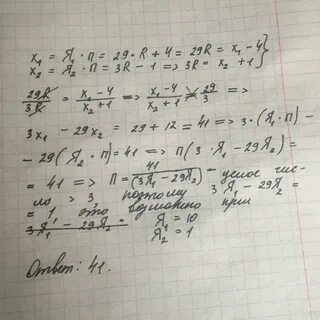 x₁ = Я₁ · П = 29 · R + 4 = 29R = x₁ - 4 }
x₂ = Я₂ · П = 3R - 1 => 3R = x₂ + 1 }
29R/3R = (x₁ - 4)/(x₂ + 1) => (x₁ - 4)/(x₂ + 1) = 29/3 =>
3x₁ - 29x₂ = 29 + 12 = 41 => 3 · (Я₁ · П) -
- 29(Я₂ · П) = 41 => П(3 · Я₁ - 29Я₂) =
= 41 => П = 41/(3Я₁ - 29Я₂) - целое чис-
ло > 3, поэтому 3Я₁ - 29Я₂ =
= 1, это возможно при
3Я₁ - 29Я₂ = Я₁ = 10
Я₂ = 1
Ответ: 41.